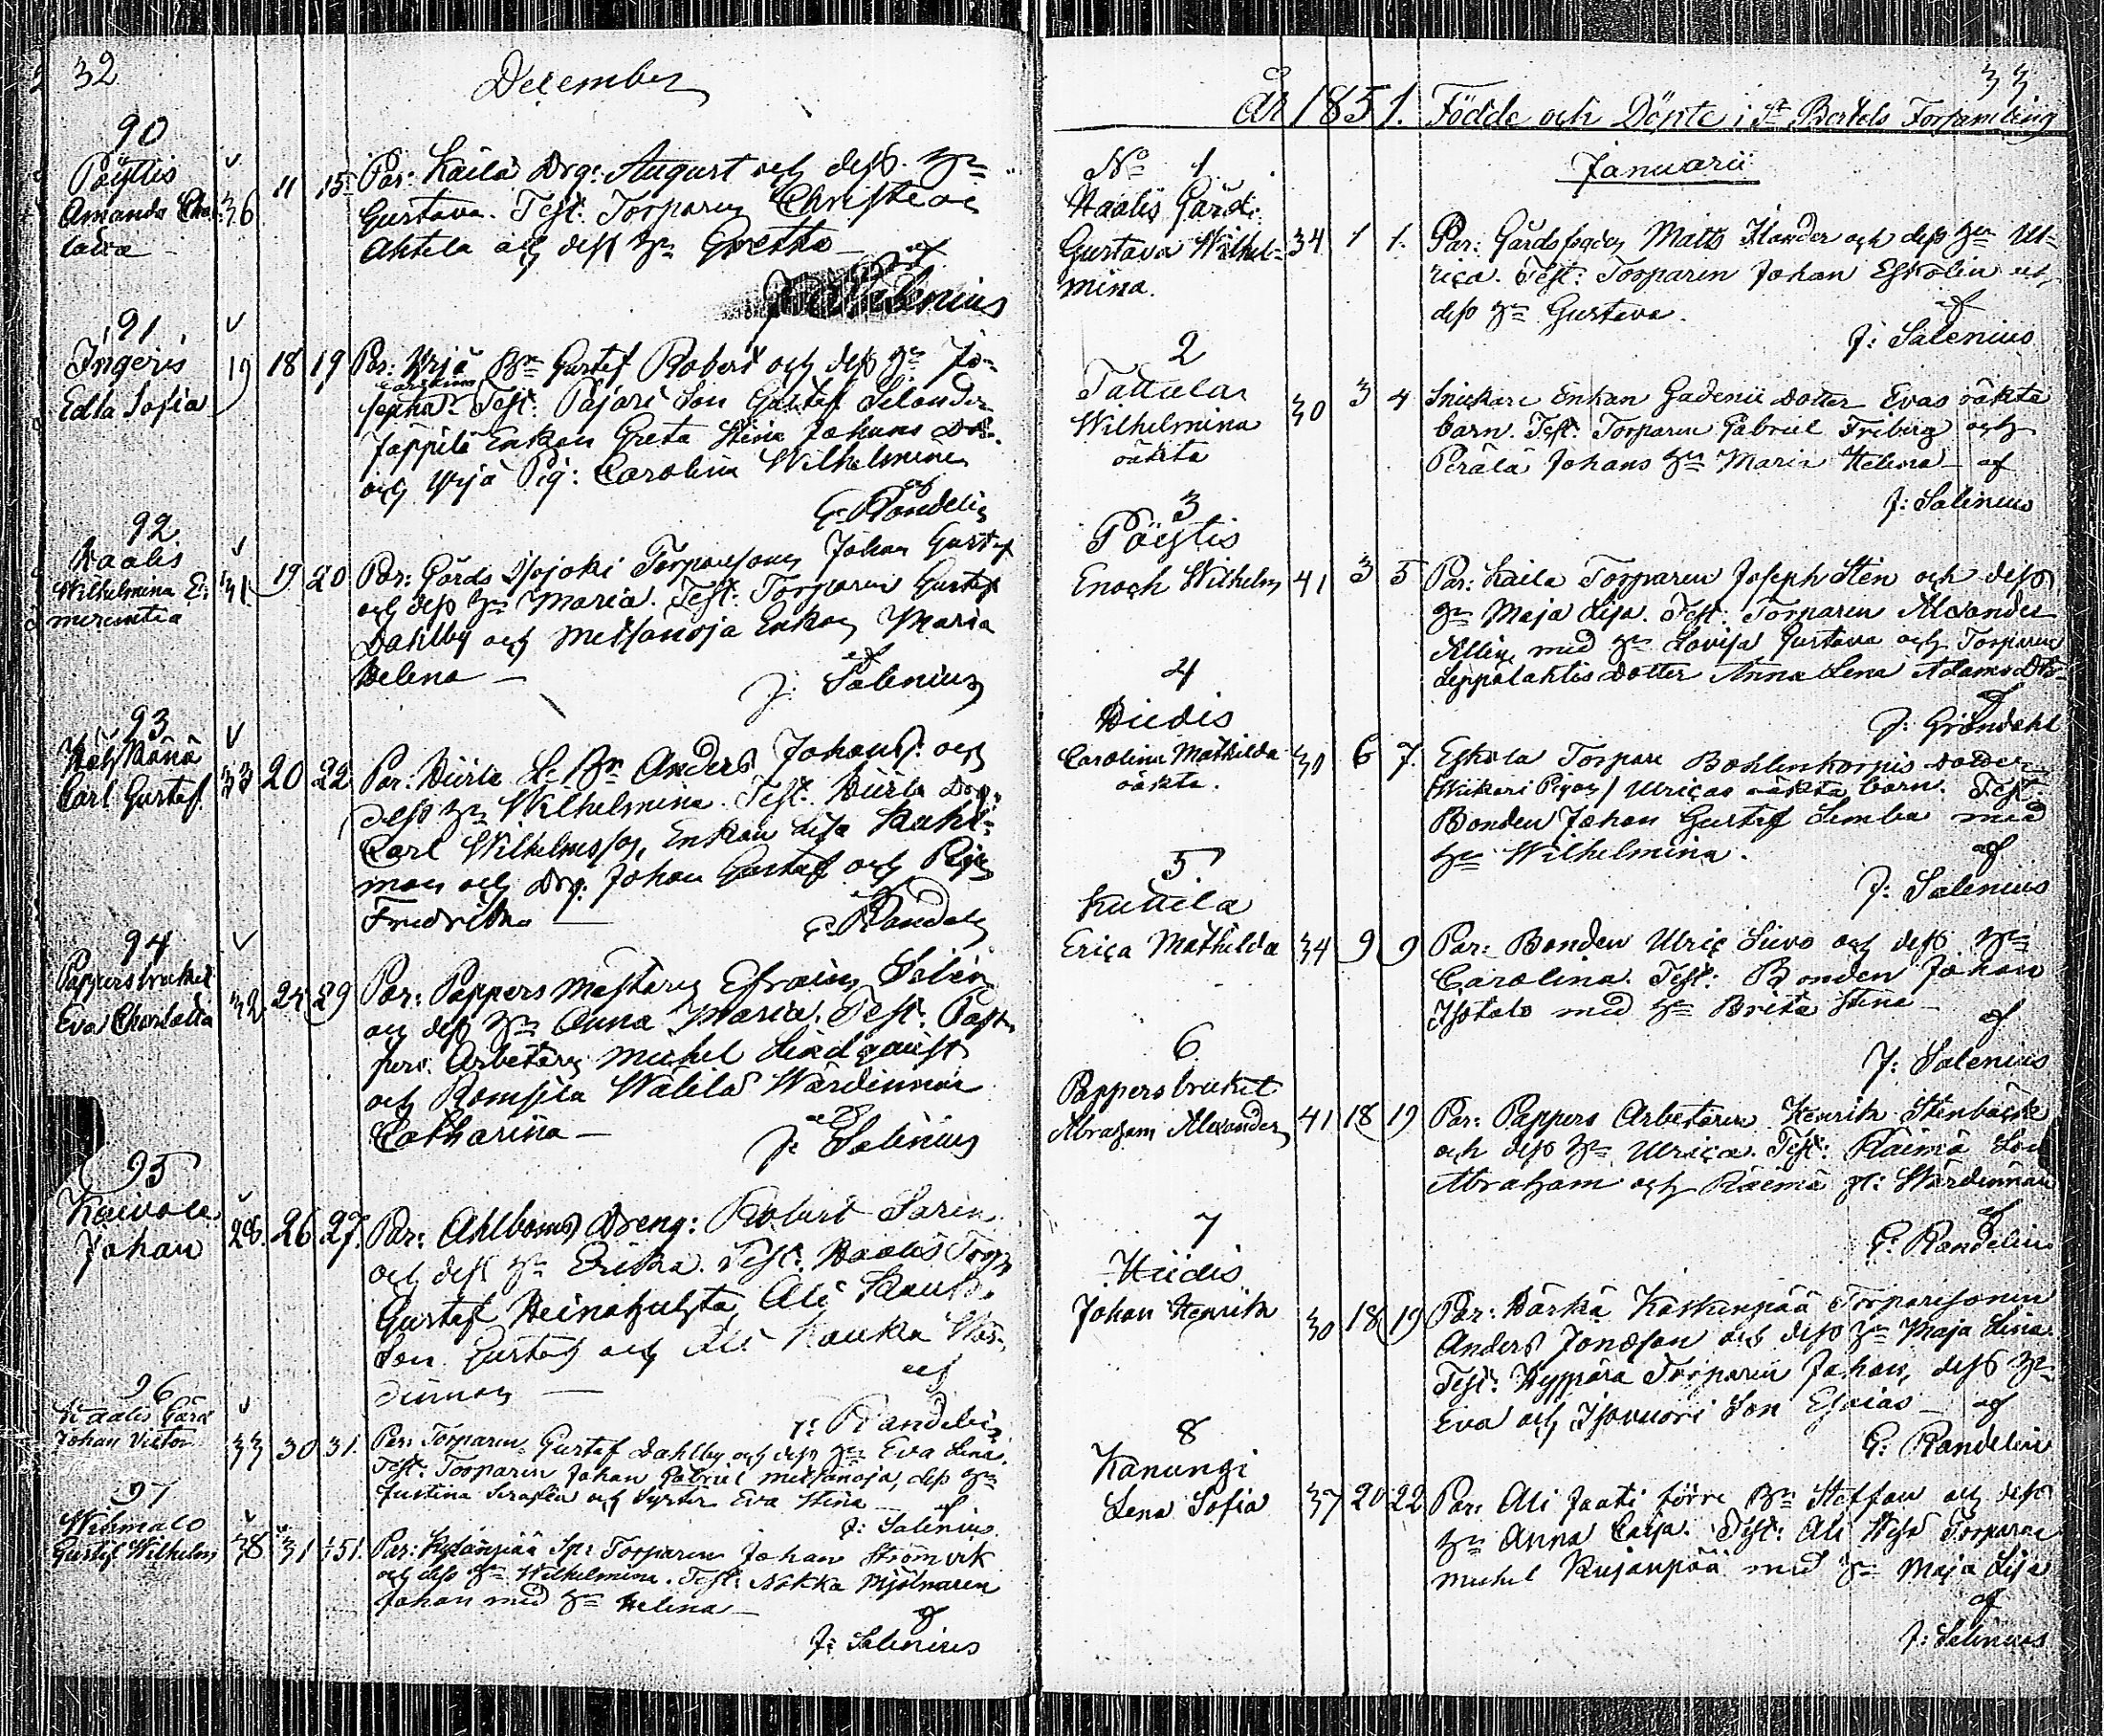 32
December
90
Pöytis
Amanda Char-
lotta
36 11 15
Par: Kaila Drg: August och dess Hu
Gustava. Test: Torparen Christer
Ahtela och dess Hu Gretha
af
J: Salenius
91
Ingeris
Edla Sofia
19 18 19
Par: Yrjä Bn Gustaf Robert och dess Hu Jo-
sepha Carolina. Test: Pajari Son Gustaf Silander
Jäppilä Enkan Greta Stina Johans Dr.
och Yrjä Pig: Carolina Wilhelmina
af
G: Randelin
92
Haalis
Wilhelmina E-
merentia
31 19 20
Par: Gårds Isojoki Torparsonen Johan Gustaf
och dess Hu Maria. Test: Torparen Gustaf
Dahlby och Metsänoja Enkan Maria
Helena
af
J: Salenius
93
Carl Gustaf
33 20 22
Par: Anders Johanss: och
dess Hu Wilhelmina. Test: Drg:
Carl Wilhelmsson, Enkan Lisa
man och Drg: Johan Gustaf och Pigan
Fredrika
G: Randelin
94
Pappersbruket
Eva Charlotta
32 24 29
Par: Pappersmästaren Efraim Salén
och dess Hu Anna Maria. Test: Pap-
pers. Arbetaren Michel Lindqvist
och Romsila Wälilä Wärdinnan
Catharina
af
J: Salenius
95
Kaivola
Johan
28. 26 27.
Par: Ahlboms Dreng: Robert Sarin
och dess Hu Erika. Test: Haalis Torp:
Gustaf Heinahuhta, Ali
Son Gustaf och Ali Kauka Wär-
dinnan
af
G: Randelin
96
Haalis Gård
Johan Victor
33 30 31.
Par: Torparen Gustaf Dahlby och dess Hu Eva Lena.
Test: Torparen Johan Gabriel Metsänoja, dess Hu
Justina Serafia och Syster Eva Stina
af
J: Salenius.
97
Wihmalo
Gustaf Wilhelm
38 31 1/51.
Par: Kylänpää Sp: Torparen Johan Strömvik
och dess Hu Wilhelmina. Test: Nokka Mjölnaren
Johan med Hu Helena
af
J: Salenius
33
År 1851. Födde och Döpte i St Bertels Församling
Januarii
No 1
Haalis Gård:
Gustava Wilhel-
mina.
34 1 1.
Par: Gårdsfogden Matts Ilander och dess Hu Ul-
rica. Test: Torparen Johan Eskolin och
dess Hu Gustava.
af
J: Salenius
2
Tattula
Wilhelmina
oäkta
30 3 4
Snickare Enkan Gadenii Dotter Evas oäkta
barn. Test: Torparen Gabriel Friberg och
Perälä Johans Hu Maria Helena af
J: Salenius
3
Pöytis
Enoch Wilhelm
41 3 5
Par: Kaila Torparen Joseph Sten och dess
Hu Maja Lisa. Test: Torparen Alexander
Allin, med Hu Lovisa Gustava och Torparen
Leppälahtis Dotter Anna Lena Adamsdtr
af
J: Gröndahl
4
Hiidis
Carolina Mathilda
oäkta.
30 6 7.
Eskola Torpare Bohlenkorpis dotter
(Wikari Pigan) Ulricas oäkta barn. Test:
Bonden Johan Gustaf Simba med
Hu Wilhelmina.
af
J: Salenius
5
Kuttila
Erica Mathilda
34 9 9
Par: Bonden Ulric Siivo och dess Hu
Carolina. Test: Bonden Johan
Isotalo med Hu Brita Stina
af
J: Salenius
6
Pappersbruket
Abraham Alexander
41 18 19
Par: Pappers Arbetaren Henrik Stenbäck
och dess Hu Ulrica. Test: Räimä Son
Abraham och Räimä gl: Wärdinnan
af
G: Randelin
7
Hiidis
Johan Henrik
30 18 19
Par: Härkä Koskenpää Torparsonen
Anders Jonasson och dess Hu Maja Lena.
Test: Hyppära Torparen Johan, dess Hu
Eva och Isovuori Son Esaias af
G: Randelin
8
Kanungi
Lena Sofia
37 20 22
Par: Ali Jaati förre Bn Steffan och dess
Hu Anna Caisa. Test: Ali Wesa Torparen
Michel Kujanpää med Hu Maja Lisa
af
J: Salenius